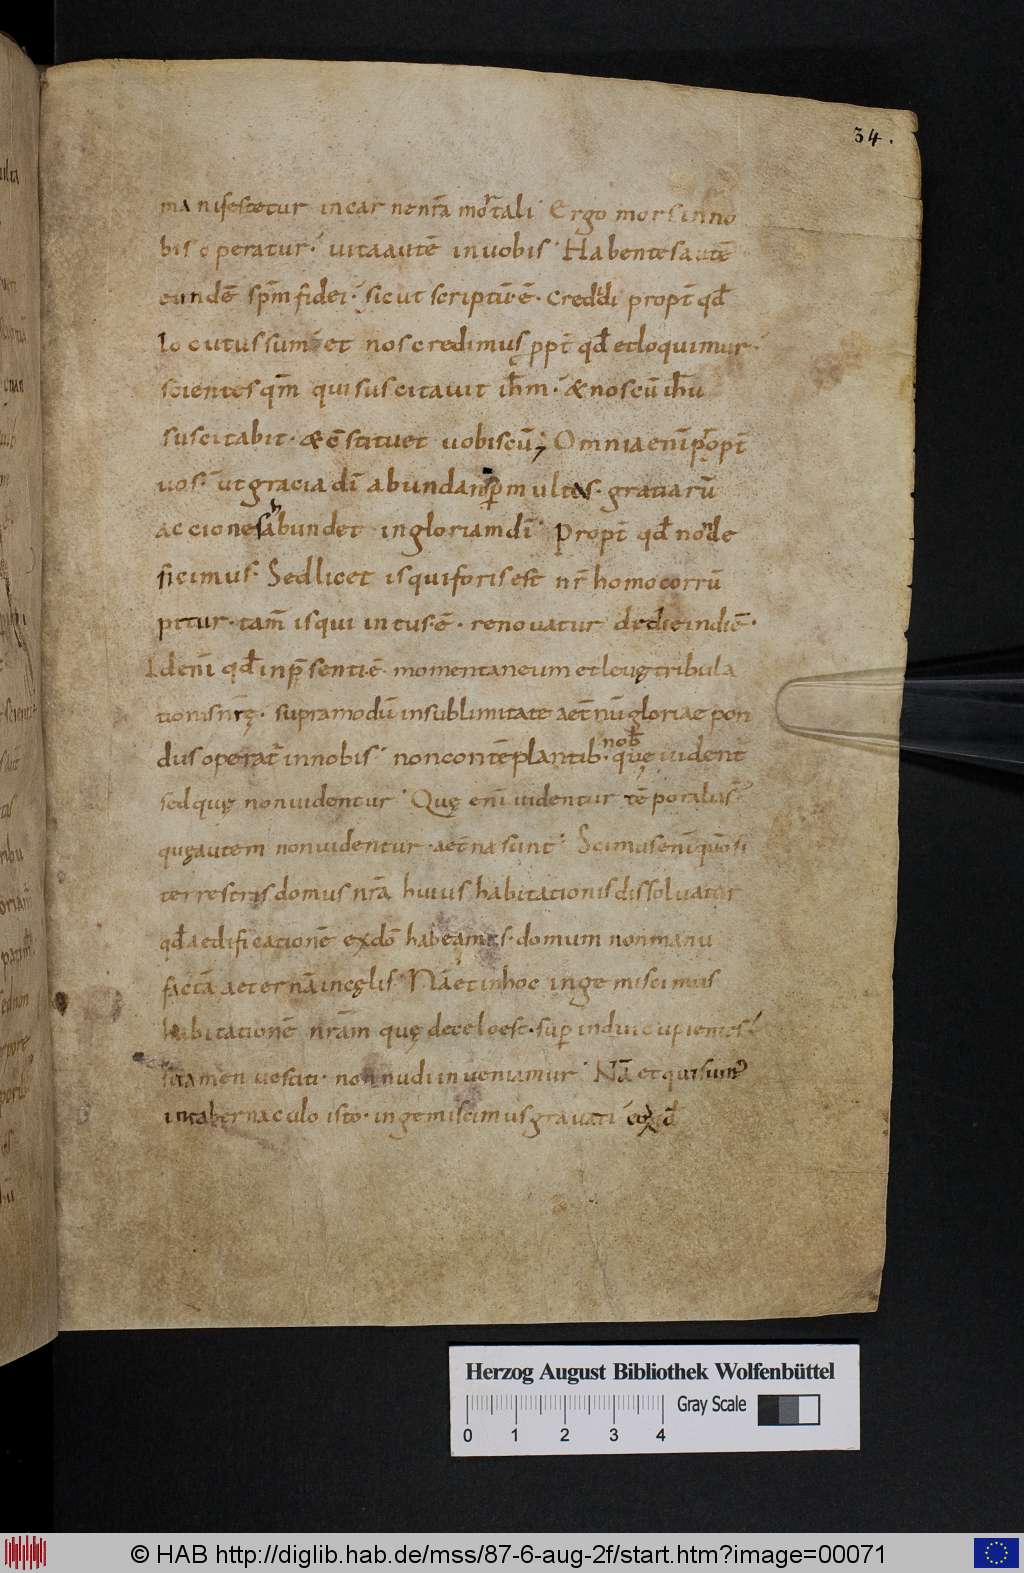 34.
manifestetur incarne nr̄a mortali. Ergo mors in no
bis operatur. vita autē in vobis. Habentes autē
eundē sp̄m fidei. sicut scriptū. ē. credidi propt̄ qđ
locutus sum. et nos credimus ꝓpt̄ qđ et loquimur.
scientes qm̄ qui suscitavit ih̄m. & nos cū ih̄u
suscitabit. & c̄stituet vobiscū; Omnia enī propt̄
vos. ut gracia dī abundans ꝑ multos. gratiarū
accione abundet in gloriam dī. Propt̄ qđ non de
ficimus. Sed licet is qui foris est nr̄ homo corrū
pitur. tam̄ is qui intus. ē. renovatur de die in diē.
Id enī qđ in p̄senti. ē. momentaneum et levę tribula
tionis nr̄ę. supra modū in sublimitate aet̄nū gloriae pon
dus operat̄ in nobis. non contēplantib. nob̄ quę vident̄
sed quę non videntur. Quę enī videntur tēporalia s̄.
quę autem non videntur. aet̄na sunt. Scimus enī qm̄ si
terrestris domus nr̄a huius habitationis dissolvatur
qđ aedificationē ex dō habeamus. domum non manu
factā aeternā in cęlis. Nā et in hoc ingemiscimus
habitationē nr̄am quę de celo est. sup̄ indui cupientes.
si tamen vestiti. non nudi inveniamur. Nā et qui sum'
in tabernaculo isto. ingemiscimus gravati. eo qđ
Herzog August Bibliothek Wolfenbüttel
Gray Scale
0 1 2 3 4
© HAB http://diglib.hab.de/mss/87-6-aug-2f/start.htm?image=00071